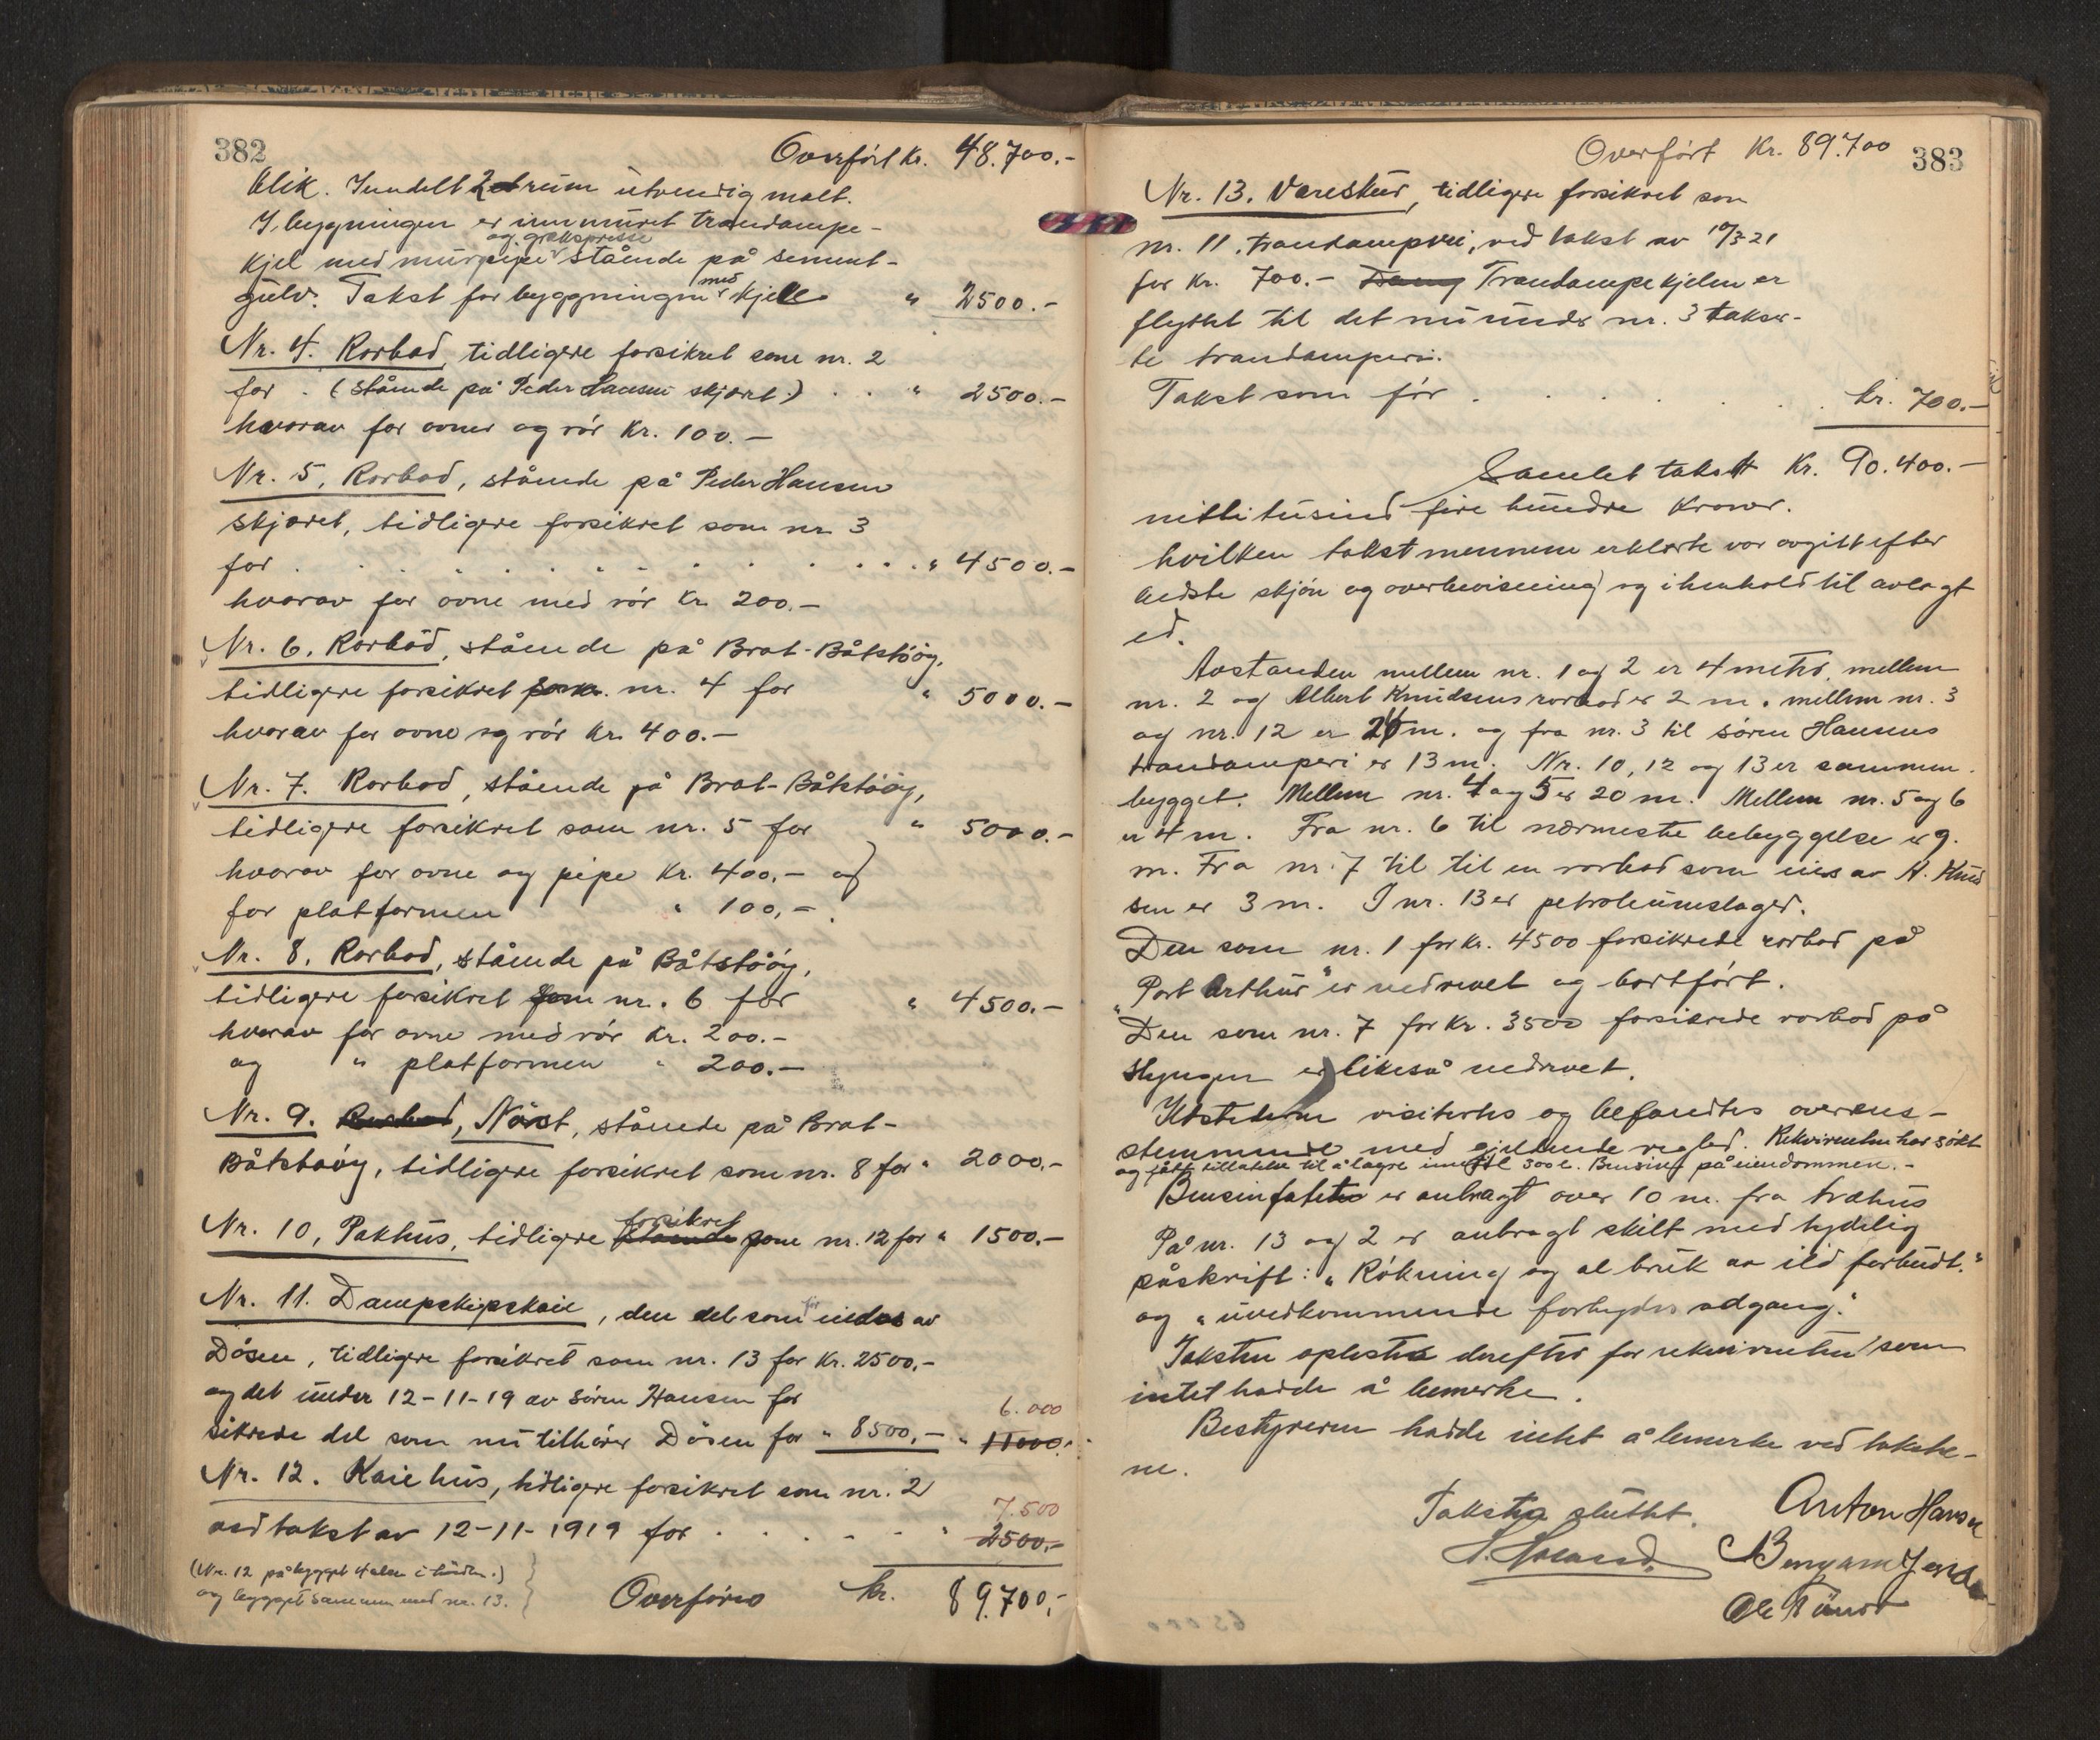 382
Overført Kr. 48.700.-
blik. Inndelt 2 rum utvendig malt.
I bygningen er innmuret trandampe-
og graksepresse
kjel med murpipe stående på sement-
med
gulv. Takst for byggningen kjele " 2500.-
Nr. 4. Rorbod, tidligere forsikret som nr. 2
for . (stående på Peder Hansen skjæret.) . . " 2500.-
hvorav for ovner og rör Kr. 100.-
Nr. 5, Rorbod, stående på Peder Hansen
skjæret, tidligere forsikret som nr 3
for . . . . . . . . . . . " 4500.-
hvorav for ovne med rör Kr 200.-
Nr. 6. Rorbod, stående på Brat-Båtstöög,
tidligere forsikret som nr. 4 for " 5000.-
hvorav for ovne og rör Kr. 400.-
Nr. 7. Rorbod, stående på Brat-Båtstöög,
tidligere forsikret som nr. 5 for " 5000.-
hvorav for ovne og pipe Kr. 400,- og
for platformen " 100,-.
Nr. 8, Rorbod, stående på Båtstöög,
tidligere forsikret som nr. 6 for " 4500.-
hvorav for ovne med rör Kr. 200.-
og " platformen " 200.-
Nr. 9. Rorbod, Nöst, stående på Brat-
Båtstöög, tidligere forsikret som nr. 8 for " 2000.-
forsikret
Nr. 10, Pakhus, tidligere stående som nr. 12 for " 1500.-
Nr. 11. Dampskipskaie, den del som før eiedes av
Dösen, tidligere forsikret som nr. 13 for Kr. 2500,-
og det under 12-11-19 av Sören Hansen for
6.000
sikrede del som nu tilhörer Dösen for " 8500,- " 11000.-
Nr. 12. Kaiehus, tidligere forsikret som nr. 2
7.500
ved takst av 12-11-1919 for . . . . . " 2500.-
(Nr. 12 påbygget 4 alen i bredden.)
og bygget sammen med nr. 13.
Overføres kr. 89.700,-
Overført Kr. 89.700
383
Nr. 13. Vareskur, tidligere forsikret som
nr. 11, trandamperi, ved takst av 10/3-21
for Kr. 700.- Damp Trandampekjelen er
flyttet til det nu under nr. 3 takser-
te trandamperi.
Takst som för . . . . . . kr. 700.-
Samlet takst Kr. 90.400.-
nitti tusind fire hundre Kroner.
hvilken takst mennene erklærte var avgitt efter
bedste skjön og overbevisning og i henhold til avlagt
ed.
Avstanden mellem nr. 1 og 2 er 4 meter, mellem
nr. 2 og Albert Knudsens rorbod er 2 m. mellem nr. 3
og nr. 12 er 26 m. og fra nr. 3 til Sören Hansens
trandamperi er 13 m. Nr. 10, 12 og 13 er sammen-
bygget. Mellem nr. 4 og 5 er 20 m. Mellem nr. 5 og 6
er 4 m. Fra nr. 6 til nærmeste bebyggelse er 9.
m. Fra nr. 7 til til en rorbod som eies av A. Knud
sen er 3 m. I nr. 13 er petroleumslager.
Den som nr. 1 for kr. 4500 forsikrede rorbod på
"Port Arthur" er nedrevet og bortført.
Den som nr. 7 for Kr. 3500 forsikrede rorbod på
Hyngen er likeså nedrevet.
Ildstederne visitertes og befandtes overens-
stemmende med gjeldende regler. Rekvirenten har sökt
og fått tillatelse til å lagre inntil 500 l. Bensin på eiendommen.-
Bensinfatet er anbragt over 10 m. fra træhus
På nr. 13 og 2 er anbragt skilt med tydelig
påskrift: "Rökning og al bruk av ild forbudt."
og "uvedkommende forbydes adgang."
Taksten oplestes derefter for rekvirenten som
intet hadde å bemerke.
Bestyreren hadde intet å bemerke ved takste-
ne.
Taksten sluttet. Anton Hansen